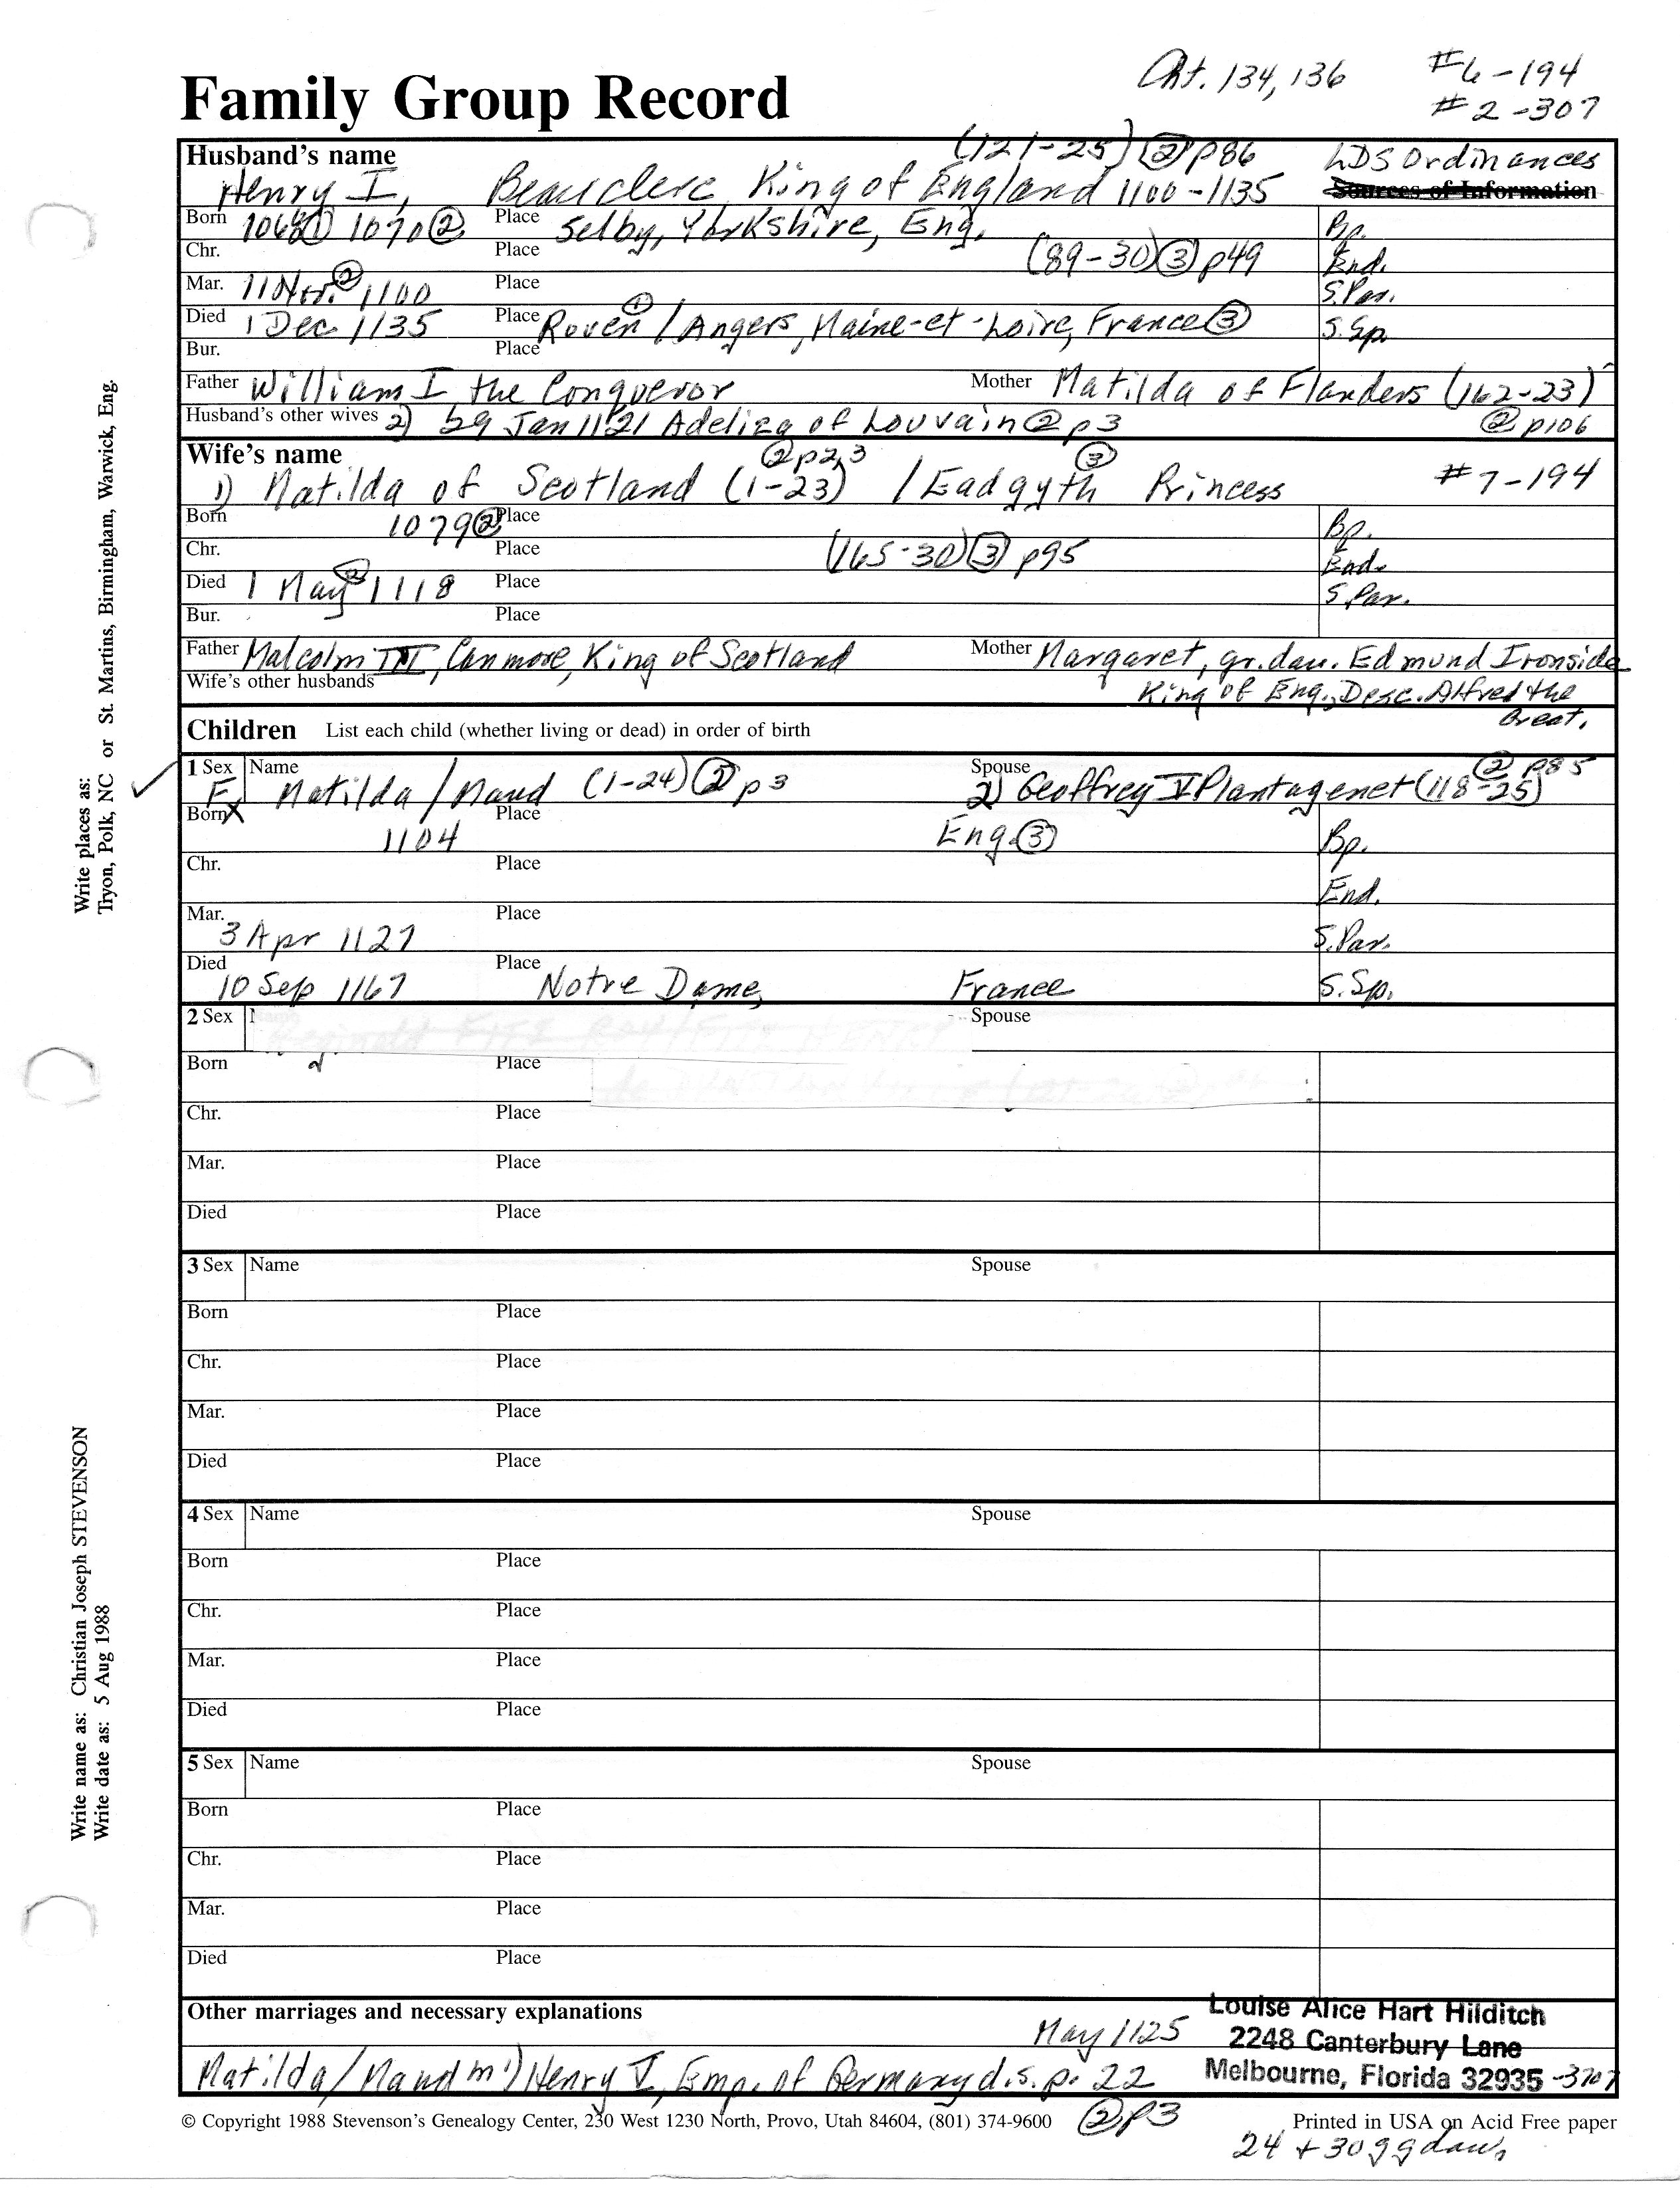 Cht. 134, 136 #6-194
Family Group Record #2-307
(121-25) ② p86 LDS Ordinances
Husband's name Sources of Information
Henry I, Beauclerc, King of England 1100-1135
Born 1068① 1070② Place Selby, Yorkshire, Eng. Bp.
Chr. Place (89-30) ③ p49 End.
Mar. 11 Nov.② 1100 Place S.Par.
Died 1 Dec 1135 Place Rouen① / Angers, Maine-et-Loire, France③ S.Sp.
Bur. Place
Father William I the Conqueror Mother Matilda of Flanders (162-23)
Husband's other wives 2) 29 Jan 1121 Adeliza of Louvain② p3 ② p106
Wife's name ② p2,3 ③
1) Matilda of Scotland (1-23) / Eadgyth Princess #7-194
Born 1079② Place Bp.
Chr. Place (165-30) ③ p95 End.
Died 1 May② 1118 Place S.Par.
Bur. Place
Father Malcolm III, Canmore, King of Scotland Mother Margaret, gr.dau. Edmund Ironside
Wife's other husbands King of Eng., Desc. Alfred the
Great.
Children List each child (whether living or dead) in order of birth
1 Sex Name Spouse ② p85
F Matilda / Maud (1-24) ② p3 2) Geoffrey V Plantagenet (118-25)
Born X Place
1104 Eng.③ Bp.
Chr. Place
End.
Mar. Place
3 Apr 1127 S.Par.
Died Place
10 Sep 1167 Notre Dame, France S.Sp.
2 Sex Spouse
Born Place
Chr. Place
Mar. Place
Died Place
3 Sex Name Spouse
Born Place
Chr. Place
Mar. Place
Died Place
4 Sex Name Spouse
Born Place
Chr. Place
Mar. Place
Died Place
5 Sex Name Spouse
Born Place
Chr. Place
Mar. Place
Died Place
Other marriages and necessary explanations Louise Alice Hart Hilditch
May 1125 2248 Canterbury Lane
Matilda / Maud m1) Henry V, Emp. of Germany d.s.p. 22 Melbourne, Florida 32935-3707
© Copyright 1988 Stevenson's Genealogy Center, 230 West 1230 North, Provo, Utah 84604, (801) 374-9600 ② p3 Printed in USA on Acid Free paper
24 + 30 g gdau.
Write places as:
Tryon, Polk, NC or St. Martins, Birmingham, Warwick, Eng.
Write name as: Christian Joseph STEVENSON
Write date as: 5 Aug 1988